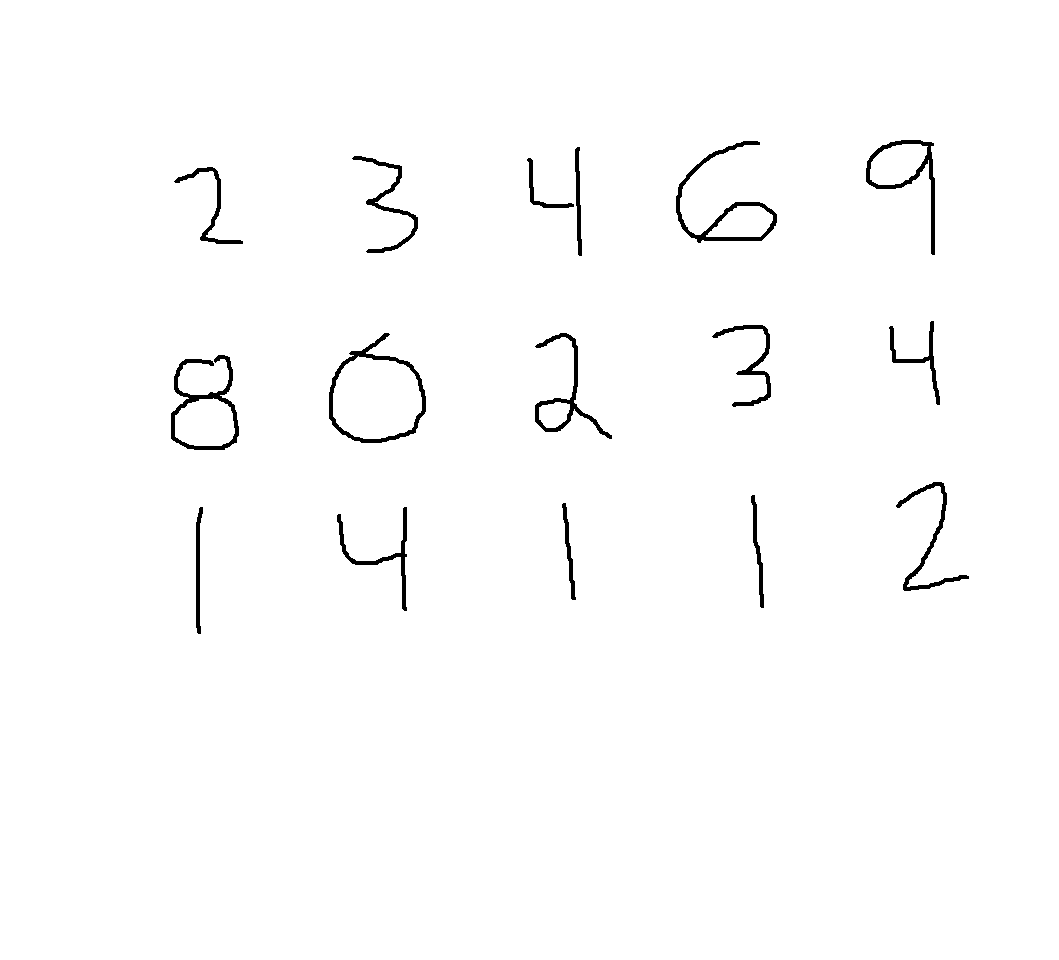 2 3 4 6 9
8 0 2 3 4
1 4 1 1 2